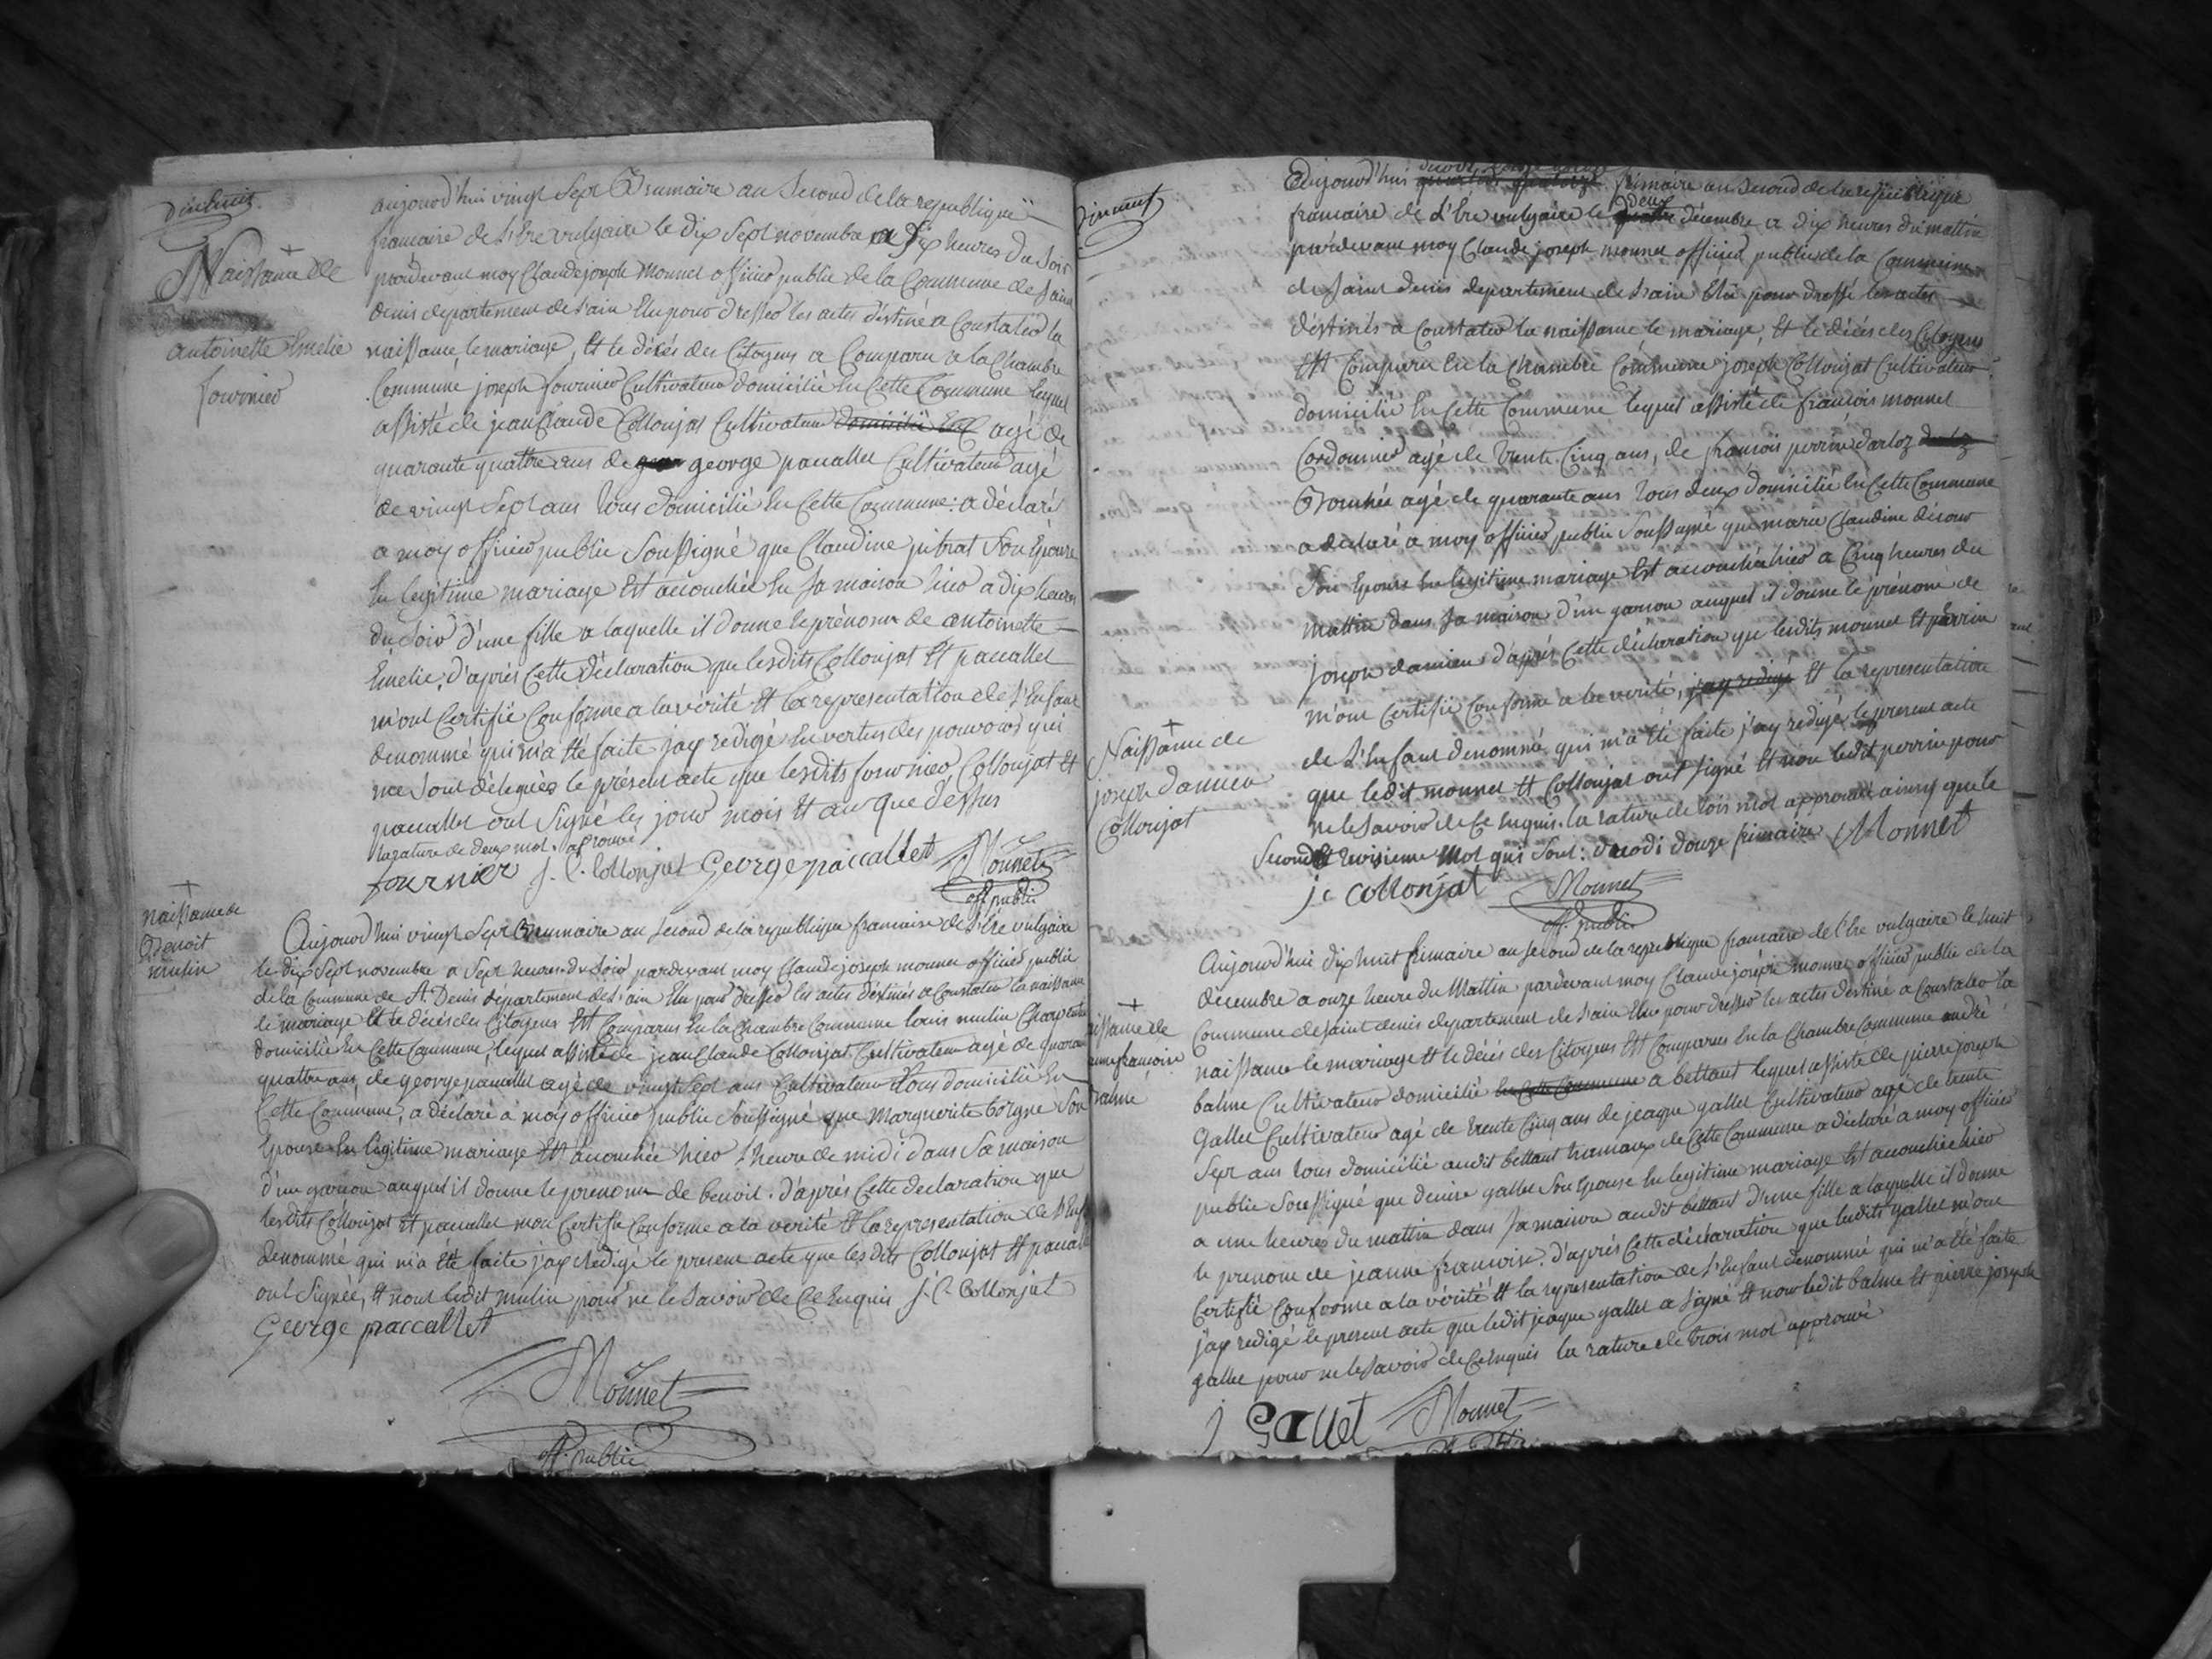 Naissance de
antoinette Emelie
fournier
aujourd'hui vingt sept Brumaire an second de la republique
francaise de L'Ere vulgaire le dix sept novembre a six heures du soir
pardevant moy Claude joseph Monnet officier public de la Commune de saint
denis departement de l'ain Elu pour dresser les actes déstiné a Constater la
naissance, le mariage, Et le décés des Citoyens a Comparu a la Chambre
Commune joseph fournier Cultivateur domicilié En Cette Commune lequel
assisté de jean Claude Collonjat Cultivateur domicilié En C agé de
quarante quattre ans de george paccallet Cultivateur agé
de vingt Sept ans tous domicilié En Cette Commune: a déclaré
a moy officier public Soussigné que Claudine pitrat Son Epouse
En legitime mariage Est accouchée En Sa maison hier a dix heures
du Soir d'une fille a laquelle il donne le prénom de antoinette
Emelie. d'aprés Cette déclaration que lesdits Collonjat Et paccallet
m'ont Certifié Conforme a la vérité Et la representation de L'Enfant
denommé qui m'a été faite jay redigé En vertus des pouvoirs qui
me sont délegués le présent acte que lesdits fournier, Collonjat Et
paccallet ont Signé les jour mois Et an que dessus
la rature de deux mot approuvé
fournier J. C. Collonjat George paccallet Monnet
off public
naissance de
Benoit
mulin
Aujourd'hui vingt Sept Brumaire an Second de la republique francaise de L'Ere vulgaire
le dix Sept novembre a Sept heures du Soir pardevant moy Claude joseph monnet officier public
de la Commune de St. Denis département de L'ain Elu pour dresser les actes déstinés a Constater la naissance
le mariage Et le décés des Citoyens Est Comparus En la Chambre Commune louis mulin Charpentier
domicilié En Cette Commune, lequel assisté de jean Claude Collonjat Cultivateur agé de quarante
quattre ans, de george paccallet agé de vingt Sept ans Cultivateur tous domicilié En
Cette Commune, a déclaré a moy officier public Soussigné que Marguerite borgne Son
Epouse En légitime mariage Est accouchée hier L'heure de midi dans Sa maison
d'un garcon auquel il donne le prenom de benoit. d'aprés Cette declaration que
lesdits Collonjat Et paccallet mon Certifié Conforme a la verité Et la representation de L'Enfant
denommé qui m'a été faite j'ay Redigé le present acte que les dits Collonjat Et paccallet
ont Signée, Et nont ledit mulin pour ne le Savoir de Ce Enquis J. C. Collonjat
George paccallet
Monnet
off. public
Naissance de
joseph damien
Collonjat
Aujourd'hui frimaire an Second de la republique
francaise de L'Ere vulgaire le deux décembre a dix heures du mattin
pardevant moy Claude joseph monnet officier public de la Commune
de Saint denis departement de L'ain Elu pour dressé les actes
déstinés a Constater la naissance le mariage, Et le décés des Citoyens
Est Comparu En la Chambre Commune joseph Collonjat Cultivateur
domicilié En Cette Commune lequel assisté de francois monnet
Cordonnier agé de trente Cinq ans, de francois perrin darloz
agé de quarante ans tous deux domicilié En Cette Commune
a declaré a moy officier public Soussigné que marie Claudine
Son Epouse En legitime mariage Est accouchée hier a Cinq heures du
mattin dans Sa maison d'un garcon auquel il donne le prénom de
joseph damien d'aprés Cette déclaration que lesdits monnet Et perrin
m'ont Certifié Conforme a la verité, j'ay redigé Et la representation
de L'Enfant denommé qui m'a été faite j'ay redigé le present acte
que ledit monnet Et Collonjat ont Signé Et non ledit perrin pour
ne le Savoir de Ce Enquis. la rature de trois mot approuvé ainsy que le
Second Et troisieme Mot qui Sont: duodi douze frimaire Monnet
j c collonjat Monnet
off. public
naissance de
jeanne francoise
balme
Aujourd'hui dix huit frimaire an second de la republique francaise de l'Ere vulgaire le huit
décembre a onze heure du Mattin pardevant moy Claude joséph Monnet officier public de la
Commune de Saint denis departement de L'ain Elu pour dresser les actes destiné a Constater la
naissance le mariage Et le décés des Citoyens Est Comparus En la Chambre Commune andré
balme Cultivateur domicilié En Cette Commune a bettant lequel assisté de pierre joseph
Gallet Cultivateur agé de trente Cinq ans de jeaque gallet Cultivateur agé de trente
Sept ans tous domicilié audit bettant hamaux de Cette Commune a déclaré a moy officier
public Soussigné que denise gallet Son Epouse En legitime mariage Est accouchée hier
a une heures du mattin dans Sa maison audit bettant d'une fille a laquelle il donne
le prenom de jeanne francoise. d'aprés Cette déclaration que lesdits gallet m'ont
Certifié Conforme a la vérité Et la representation de L'Enfant denommé qui m'a été faite
j'ay redigé le present acte que ledit jeaque gallet a Signé Et non ledit balme Et pierre joseph
gallet pour ne le Savoir de Ce Enquis la rature de trois mot approuvé
j Gallet Monnet